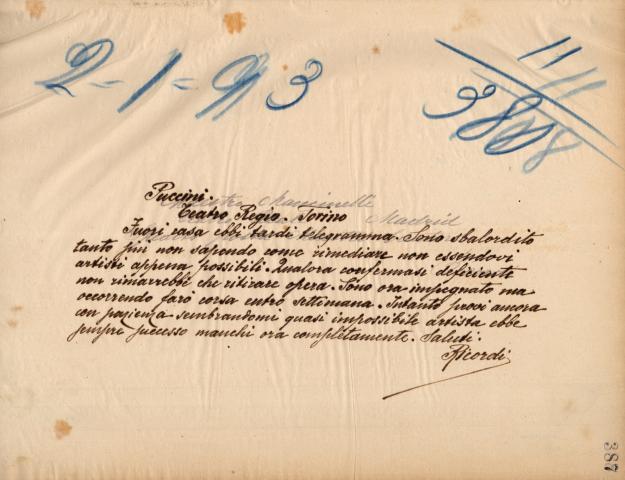 2-1-93
11
3808
Puccini.
Teatro Regio. Torino
Madrid
Fuori casa ebbi tardi telegramma. Sono sbalordito
tanto più non sapendo come rimediare non essendovi
artisti appena possibili. Qualora confermasi deficiente
non rimarrebbe che ritirare opera. Sono ora impegnato ma
occorrendo farò corsa entro settimana. Intanto provi ancora
con pazienza sembrandomi quasi impossibile artista ebbe
sempre successo manchi ora completamente. Saluti.
Ricordi
387